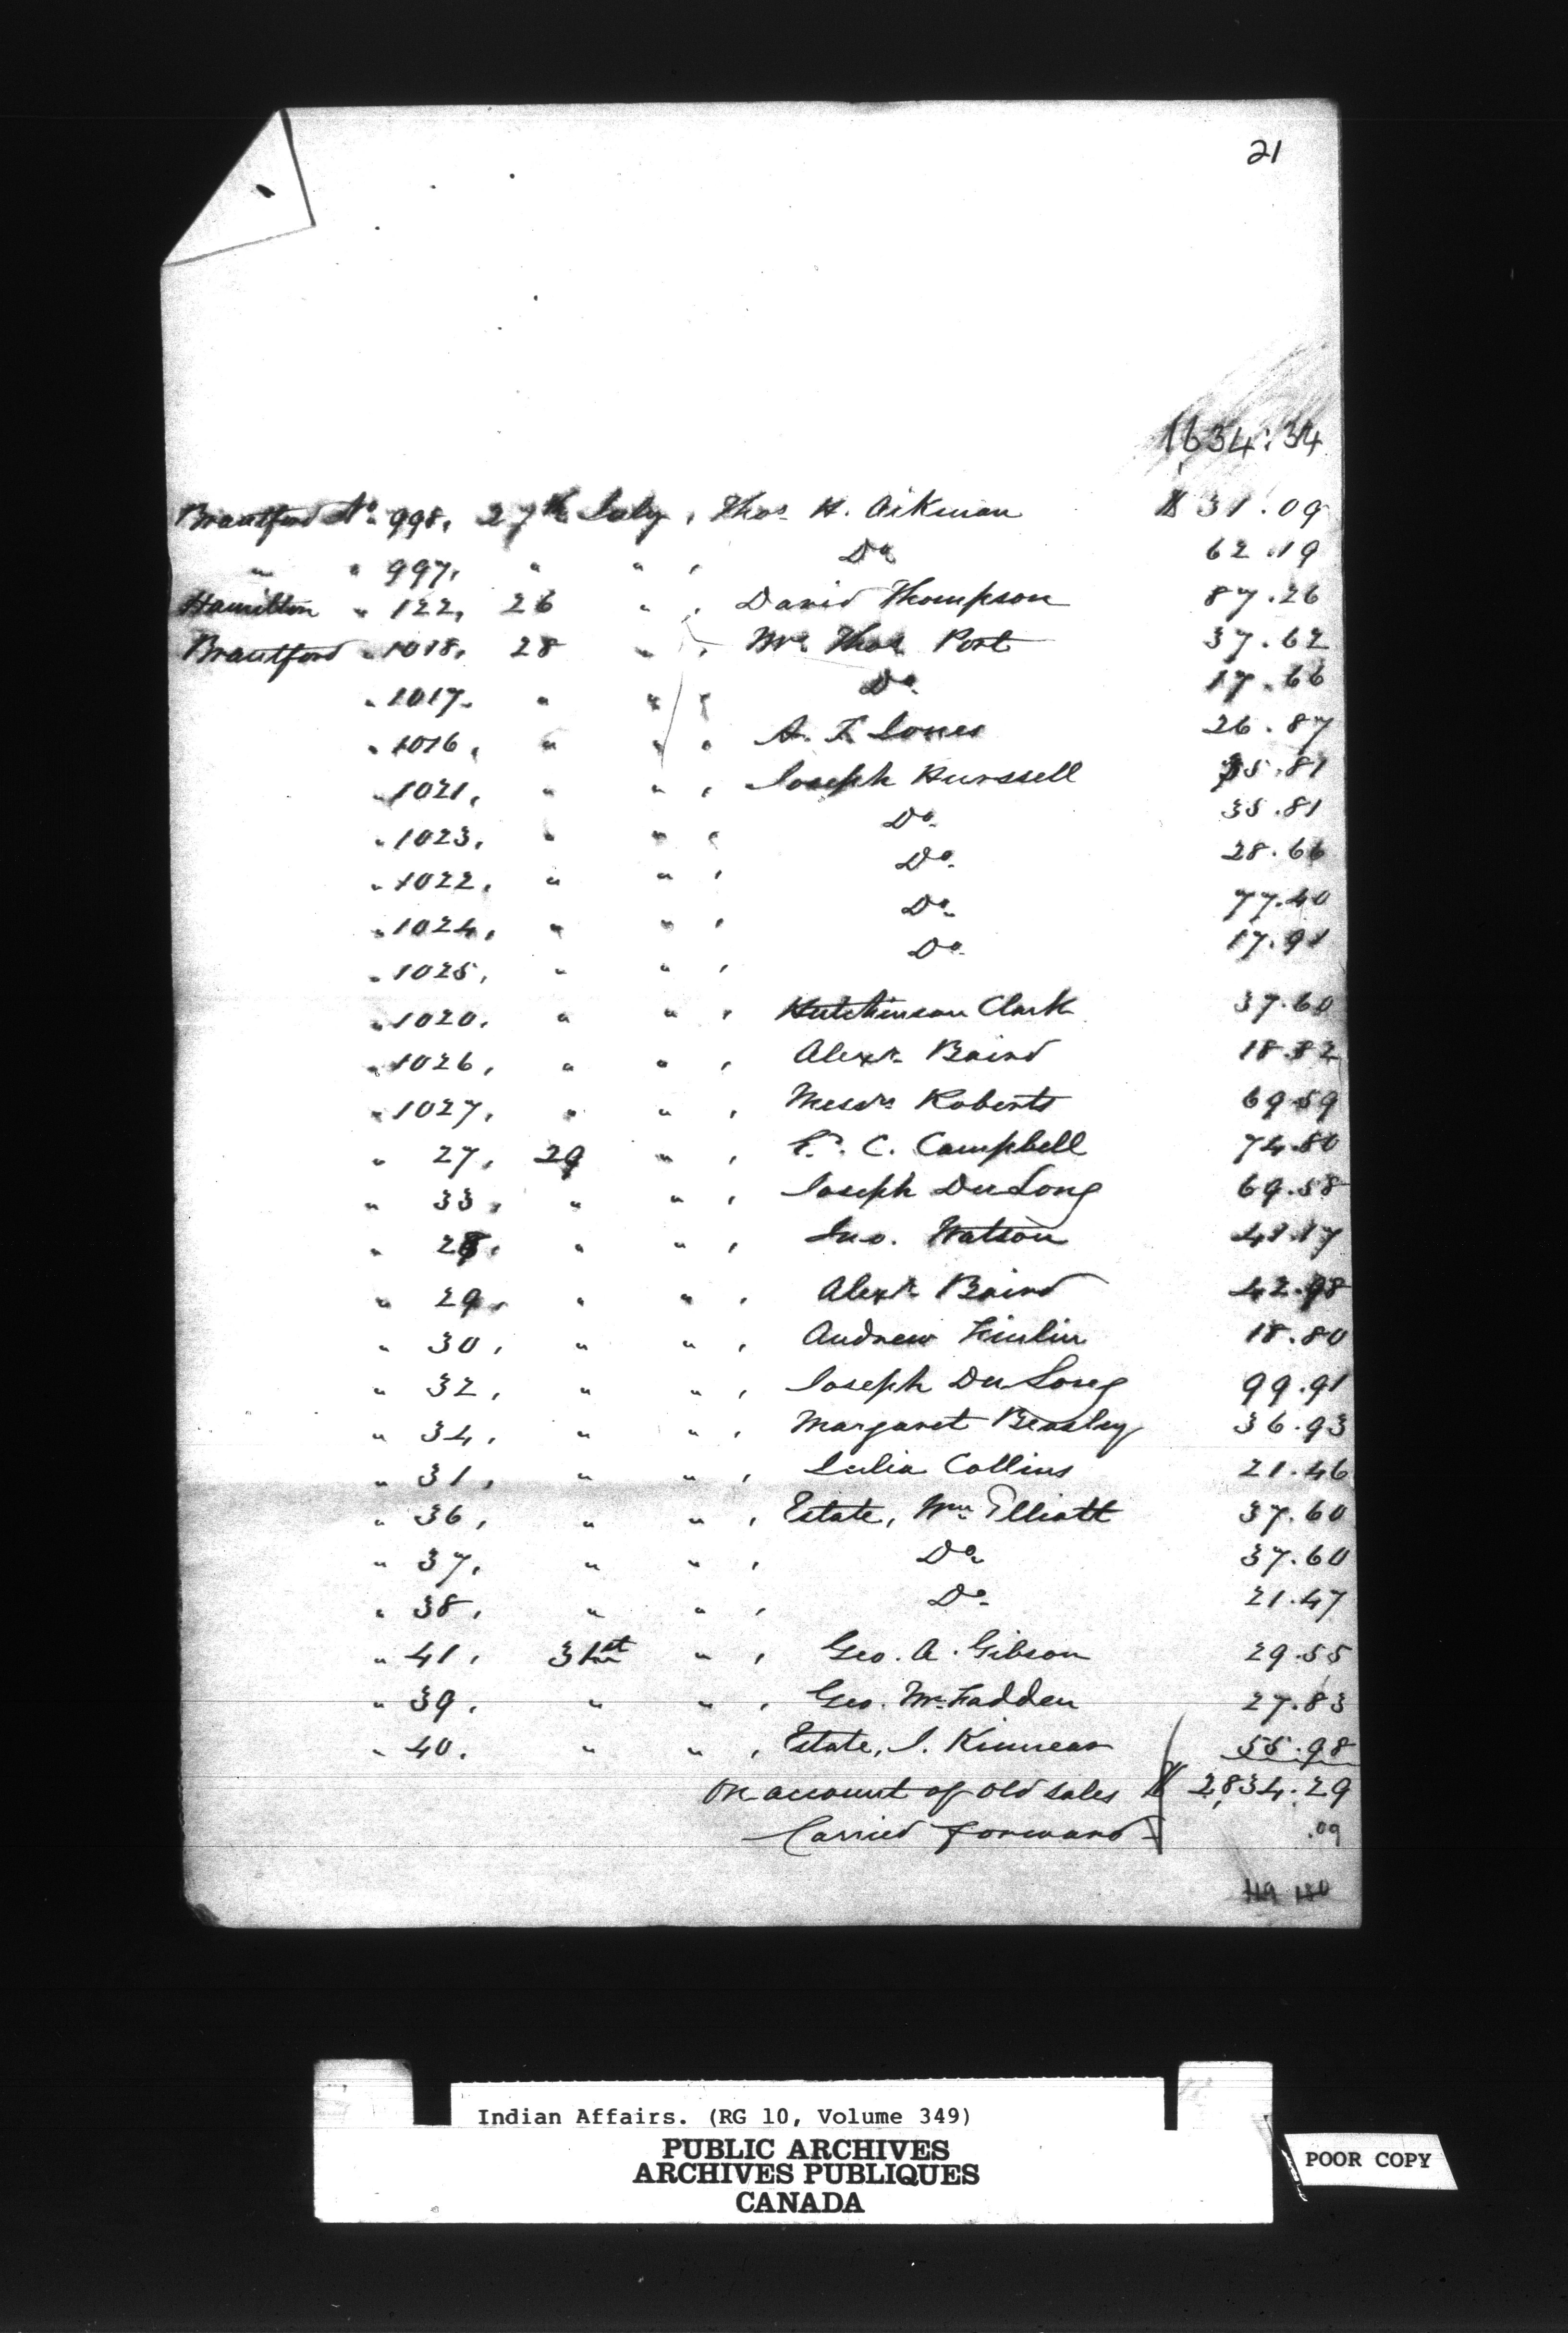 21
1634.34
Brantford No. 998, 27th July, Thos. H. Aikman $31.09
" " 997, " " , Do. 62.19
Hamilton " 122, 26 " , David Thompson 87.26
Brantford " 1018, 28 " , Mrs. Thos. Port 37.62
" 1017, " " , Do. 17.66
" 1016, " " , A. F. Jones 26.87
" 1021, " " , Joseph Hurssell 35.81
" 1023, " " , Do. 35.81
" 1022, " " , Do. 28.66
" 1024, " " , Do. 77.40
" 1025, " " , Do. 17.91
" 1020, " " , Hutchinson Clark 37.60
" 1026, " " , Alexr. Baird 18.82
" 1027, " " , Messrs Roberts 69.59
" 27, 29 " , E. C. Campbell 74.80
" 33, " " , Joseph DuLong 69.58
" 28, " " , Jno. Watson 41.17
" 29, " " , Alexr. Baird 42.98
" 30, " " , Andrew 18.80
" 32, " " , Joseph DuLong 99.91
" 34, " " , Margaret Beasley 36.93
" 31, " " , Julia Collins 21.46
" 36, " " , Estate, Wm. Elliott 37.60
" 37, " " , Do. 37.60
" 38, " " , Do. 21.47
" 41, 31st " , Geo. A. Gibson 29.55
" 39, " " , Geo. McFadden 27.83
" 40, " " , Estate, J. Kinnear 55.98
On account of old sales $2,834.29
Carried forward .09
119 180
Indian Affairs. (RG 10, Volume 349)
PUBLIC ARCHIVES
ARCHIVES PUBLIQUES
CANADA
POOR COPY